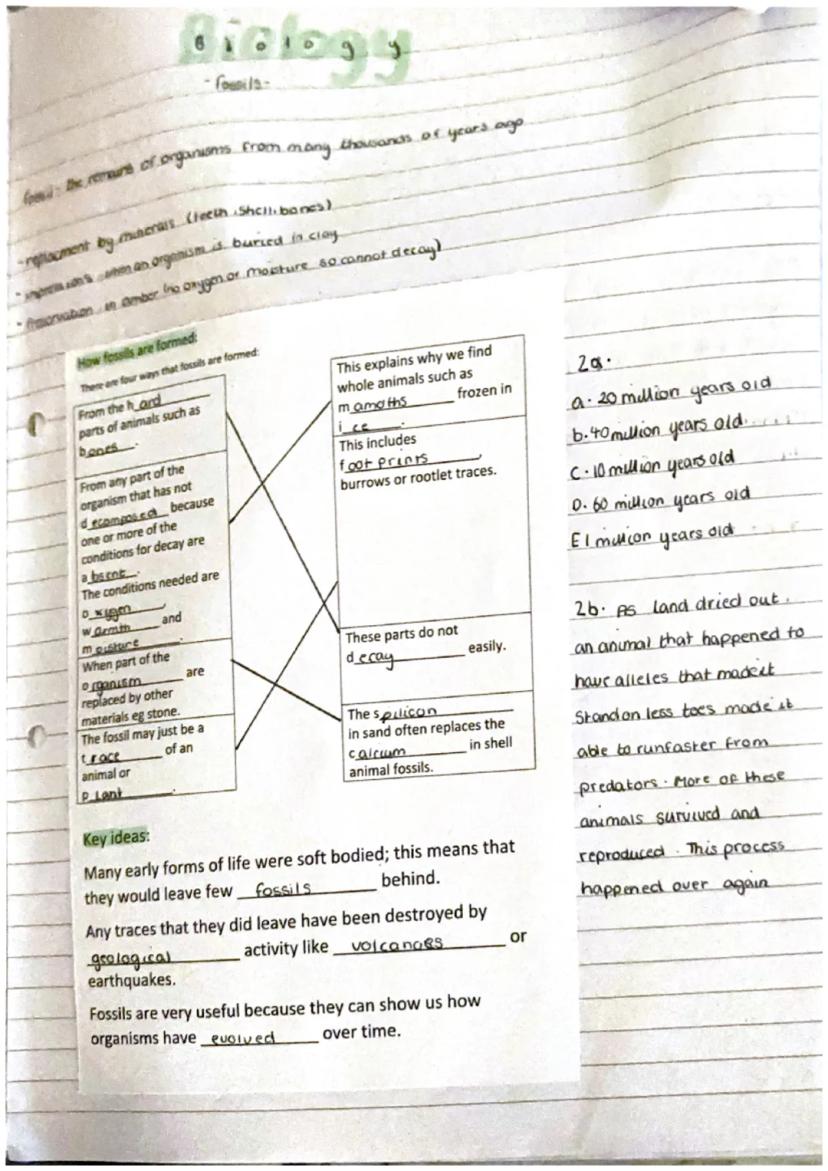 Biology
- fossils -
fossil: the remains of organisms from many thousands of years ago
- replacment by minerals (teeth, shell, bones)
- impressions when an organism is buried in clay
- Preservation in amber (no oxygen or moisture so cannot decay)
How fossils are formed:
There are four ways that fossils are formed:
From the hard
parts of animals such as
bones.
From any part of the
organism that has not
decomposed because
one or more of the
conditions for decay are
absent.
The conditions needed are
oxygen,
warmth and
moisture.
When part of the
organism are
replaced by other
materials eg stone.
The fossil may just be a
trace of an
animal or
plant.
This explains why we find
whole animals such as
mamoths frozen in
ice.
This includes
footprints,
burrows or rootlet traces.
These parts do not
decay easily.
The spilicon
in sand often replaces the
calcium in shell
animal fossils.
Key ideas:
Many early forms of life were soft bodied; this means that
they would leave few fossils behind.
Any traces that they did leave have been destroyed by
geological activity like volcanoes or
earthquakes.
Fossils are very useful because they can show us how
organisms have evolved over time.
2a.
a. 20 million years old
b. 40 million years old
C. 10 million years old
D. 60 million years old
E 1 million years old
2b. As land dried out.
an animal that happened to
have alleles that made it
Stand on less toes made it
able to run faster from
predators. More of these
animals survived and
reproduced. This process
happened over again